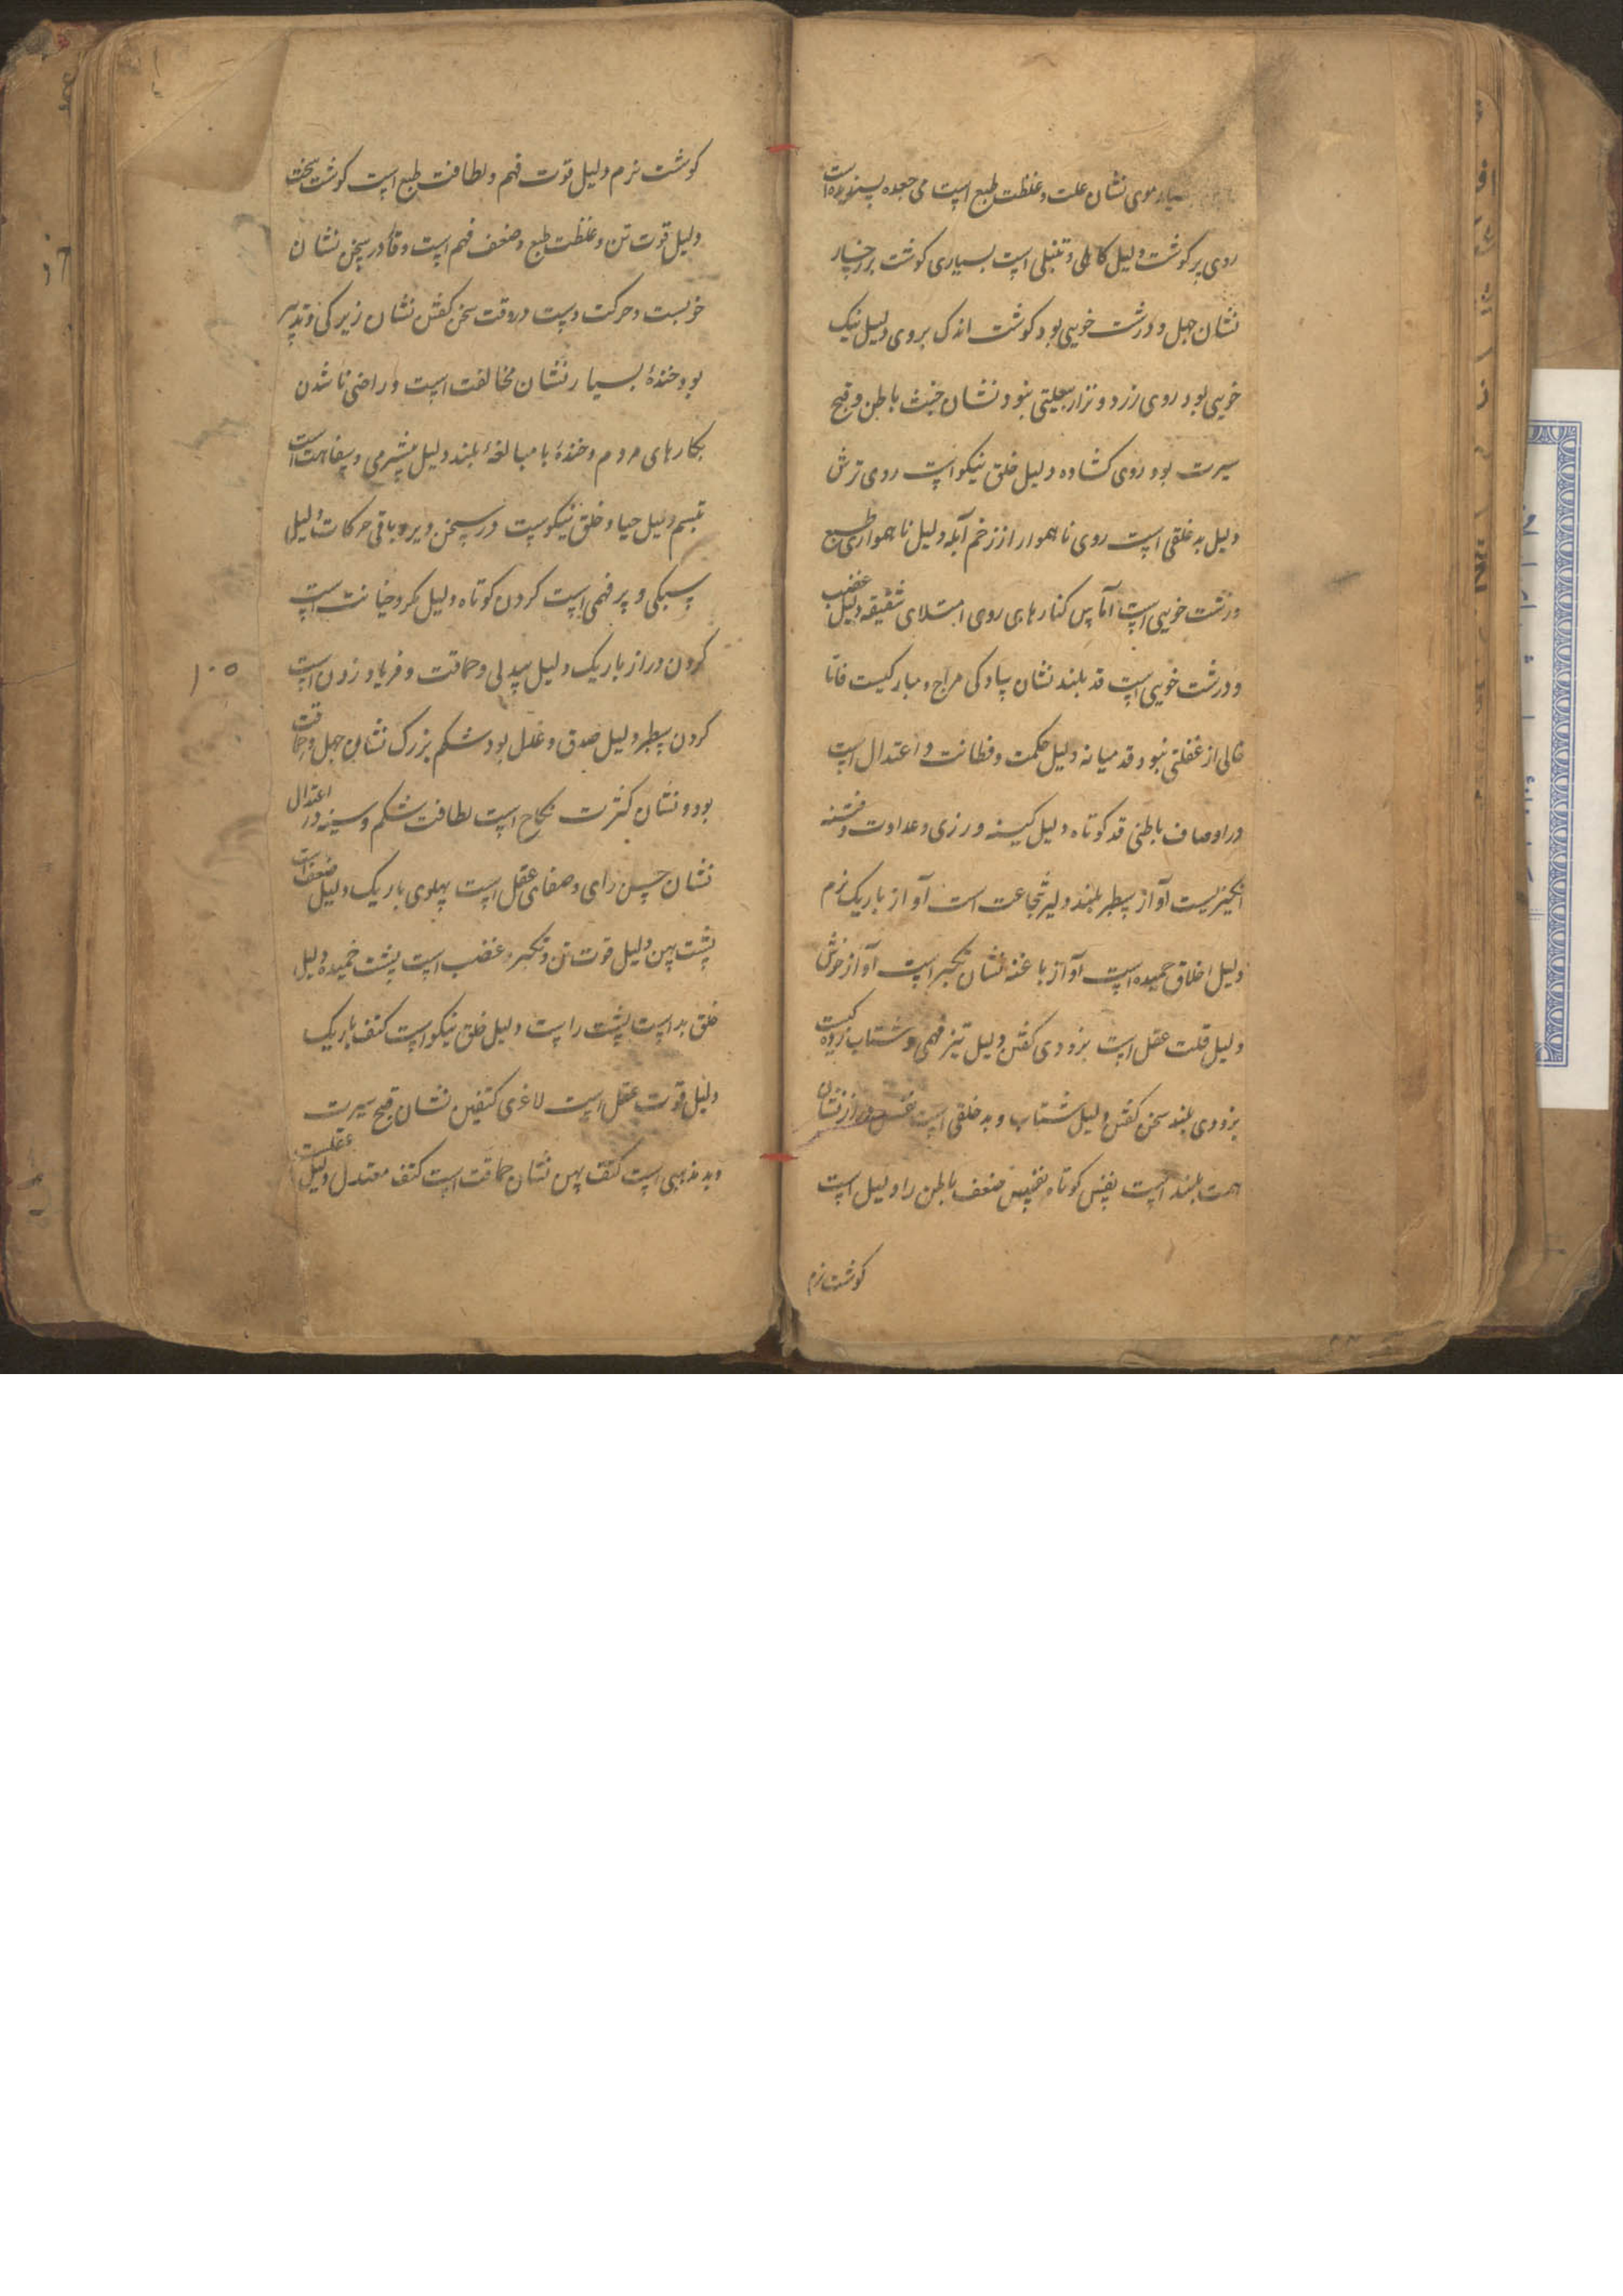 بسیار موی نشان علت و غلظت طبع است می جعده پسندیده است
روی پر کوشت دلیل کاهلی و تنبلی است بسیاری کوشت بر رخسار
نشان جهل و درشت خویی بود کوشت اندک بر روی دلیل نیک
خویی بود روی زرد و نزار بیعلتی نبود نشان خبث باطن و قبح
سیرت بود روی کشاده دلیل خلق نیکو است روی ترش
دلیل بد خلقی است روی ناهموار از زخم آبله دلیل ناهمواری طبع
و زشت خویی است آماس کنارهای روی امتلای شقیقه دلیل غضب
و درشت خویی است قد بلند نشان سادکی مزاج و مبارکیست فاما
خالی از غفلتی نبود قد میانه دلیل حکمت و فطانت و اعتدال است
در اوصاف باطنی قد کوتاه دلیل کینه ورزی و عداوت و فتنه
انکیزیست آواز سطبر بلند دلیر شجاعت است آواز باریک نرم
دلیل اخلاق حمیده است آواز با غنه نشان تکبر است آواز خوش
دلیل قلت عقل است بزودی کفتن دلیل تیز فهمی و شتاب زدکیست
بزودی بلند سخن کفتن دلیل شتاب و بد خلقی است نفس دراز نشان
همت بلند است نفس کوتاه نفس ضعف باطن را دلیل است
کوشت نرم
کوشت نرم دلیل قوت فهم و لطافت طبع است کوشت سخت
دلیل قوت تن و غلظت طبع و ضعف فهم است وقار در سخن نشان
خوبست و حرکت دست در وقت سخن کفتن نشان زیرکی و تدبیر
بود خندهٔ بسیار نشان مخالفت است و راضی ناشدن
بکارهای مردم و خندهٔ با مبالغهٔ بلند دلیل بیشرمی و سفاهت است
تبسم دلیل حیا و خلق نیکوست در سخن دیر و باقی حرکات دلیل
سبکی و پر فهمی است کردن کوتاه دلیل مکر و خیانت است
کردن دراز باریک دلیل بیدلی و حماقت و فریاد زدن است
۱۰۵
کردن سطبر دلیل صدق و عدل بود شکم بزرک نشان جهل و حماقت
بود و نشان کثرت نکاح است لطافت شکم و سینه در اعتدال
نشان حسن رای و صفای عقل است پهلوی باریک دلیل ضعف است
پشت پهن دلیل قوت تن و تکبر و غضب است پشت خمیده دلیل
خلق بد است پشت راست دلیل خلق نیکو است کتف باریک
دلیل قوت عقل است لاغری کتفین نشان قبح سیرت
و بد مذهبی است کتف پهن نشان حماقت است کتف معتدل دلیل عقلست